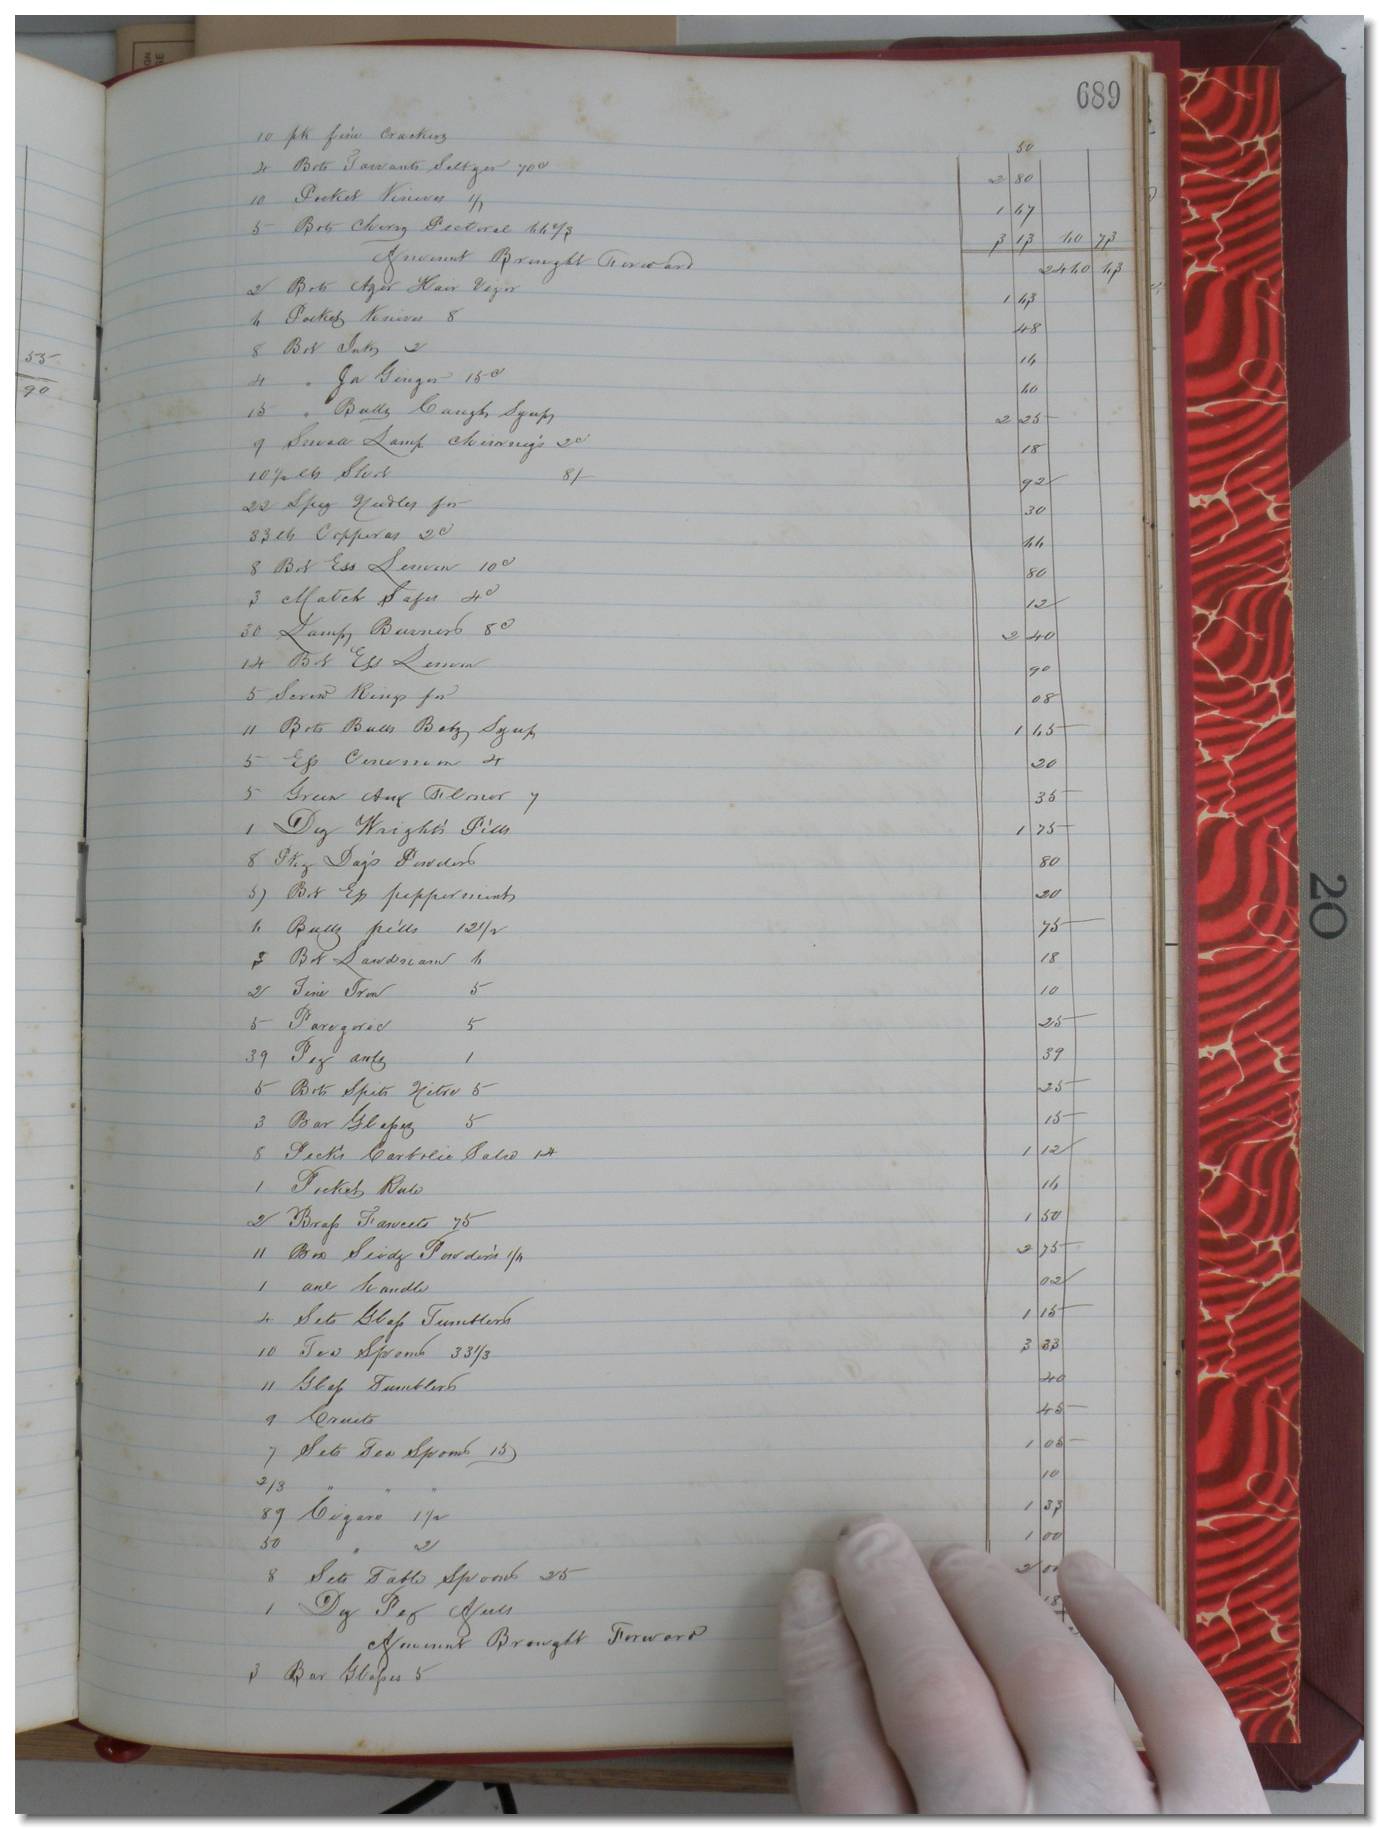 689
10 pk fine Crackers 50
4 Bots Tarrants Seltzer 70c 2 80
10 Pocket Knives 1/ 1 67
5 Bots Cherry Pectoral 62c/3 3 13 60 73
Amount Brought Forward 2460 63
2 Bots Ayer Hair Vigor 1 63
6 Pocket Knives 8 48
8 Bot Inks 2 16
4 " Ja Ginger 15c 60
15 " Bulls Cough Syrup 2 25
9 Small Lamp Chimney's 2c 18
10 1/2 lb Shot 8/- 92
22 Needles for 30
33 lb Copperas 2c 66
8 Bot Ess Lemon 10c 80
3 Match Safes 4c 12
30 Lamp Burners 8c 2 40
14 Bot Ess Lemon 90
5 Screw Rings for 08
11 Bots Bulls Baby Syrup 1 65
5 Ess Cinnamon 4 20
5 Green Flavor 7 35
1 Dz Wright's Pills 1 75
8 Pkg Day's Powders 80
5 Bot Ess peppermint 20
6 Bulls pills 12 1/2 75
3 Bot Laudnam 6 18
2 Tinc Iron 5 10
5 Paregoric 5 25
39 Peg awls 1 39
5 Bots Spits Nitre 5 25
3 Bar Glasses 5 15
8 Peck's Carbolic Salve 14 1 12
1 Pocket Rule 16
2 Brass Fawcets 75 1 50
11 Box Siedz Powders 1/4 2 75
1 awl handle 02
4 Sets Glass Tumblers 1 15
10 Tea Spoons 33 1/3 3 33
11 Glass Tumblers 40
9 Cruets 45
7 Sets Tea Spoons 15 1 05
2/3 " " " 10
89 Cigars 1 1/2 1 33
50 " 2 1 00
8 Sets Table Spoons 25 2 00
1 Dz Peg Awls 18
Amount Brought Forward
3 Bar Glasses 5
55
90
20